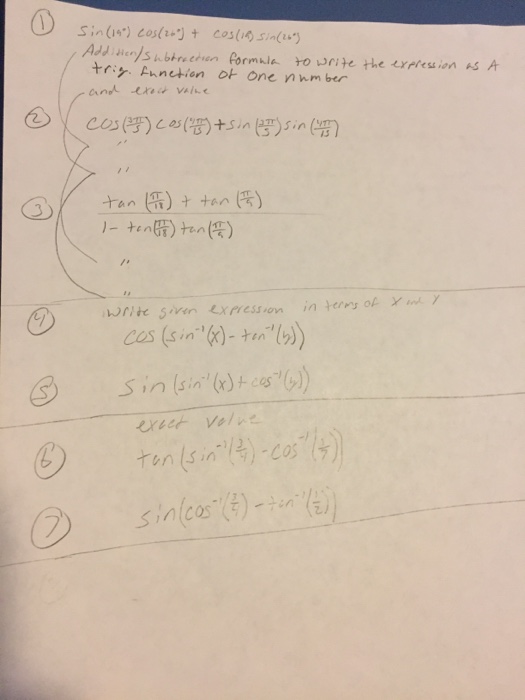 ①
sin(19°) cos(26°) + cos(19) sin(26°)
Addition/subtraction formula to write the expression as A
trig. function of one number
and exact value
②
cos(2π/5) cos(4π/15) + sin(2π/5) sin(4π/15)
"
"
③
tan(π/18) + tan(π/9)
1 - tan(π/18) tan(π/9)
"
"
write given expression in terms of x and y
④
cos(sin⁻¹(x) - tan⁻¹(y))
⑤
sin(sin⁻¹(x) + cos⁻¹(y))
exact value
⑥
tan(sin⁻¹(3/4) - cos⁻¹(1/7))
⑦